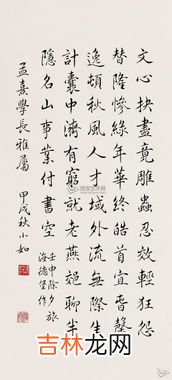 文心抉盡竟雕蟲忍效輕狂怨
替隆慘綠年華終皓首宜春馨
逸頓秋風人才域外流無際生
計囊中濟有窮就老燕趙聊半
隱名山事業付書空
壬申除夕旅
海德堡作
孟熹學長雅屬
甲戌秋小如
吉林龙网